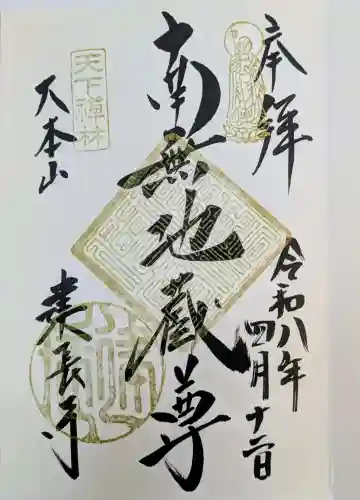 奉拝
令和八年四月十二日
南無地蔵尊
天下禅林
大本山
建長寺